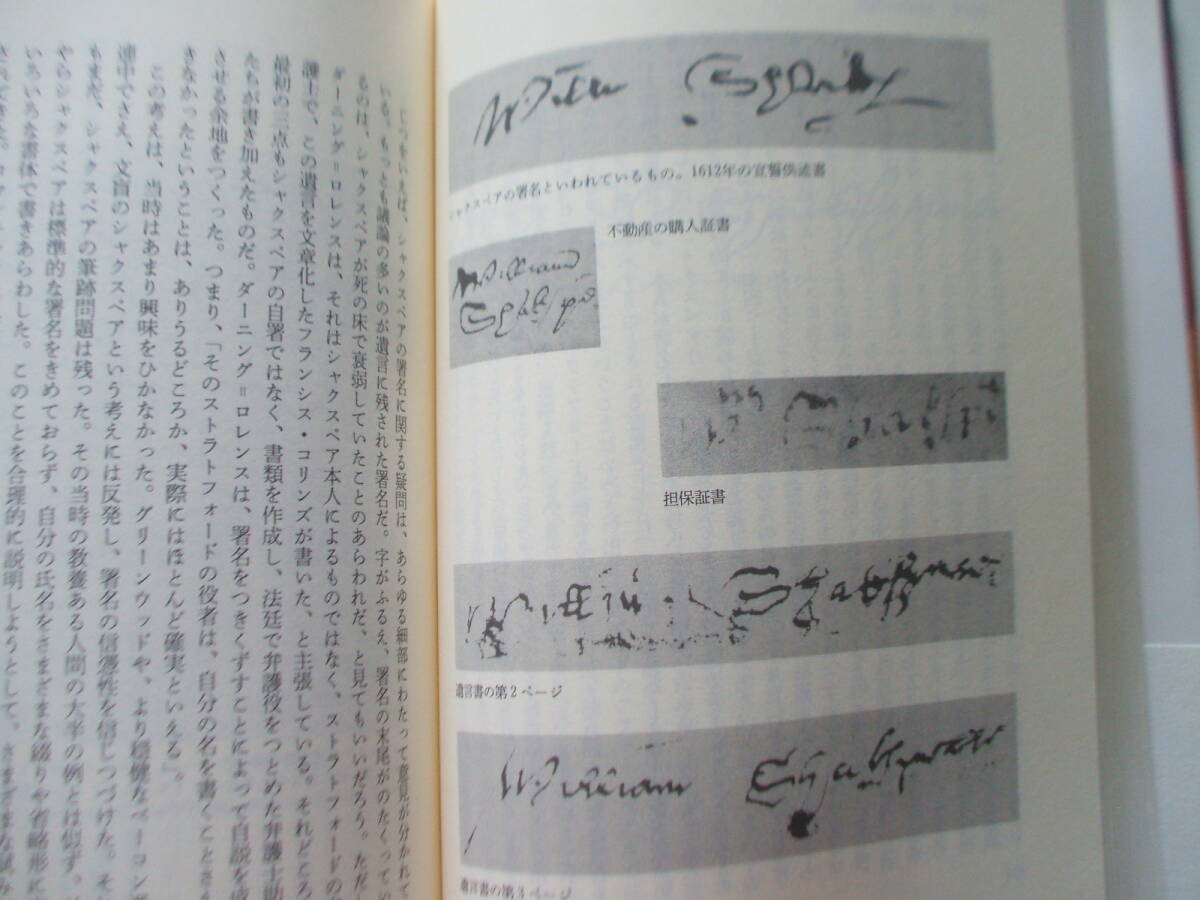 シャクスペアの署名といわれているもの。1612年の宣誓供述書
不動産の購入証書
担保証書
遺言書の第2ページ
遺言書の第3ページ
じつをいえば、シャクスペアの署名に関する疑問は、あらゆる細部にわたって意見が分かれて
いる。もっとも議論の多いのが遺言に残された署名だ。字がふるえ、署名の末尾がのたくってい
るものは、シャクスペアが死の床で衰弱していたことのあらわれだ、と見てもいいだろう。ただし
ダーニング=ロレンスは、それはシャクスペア本人によるものではなく、ストラトフォードの
護士で、この遺言を文章化したフランシス・コリンズが書いた、と主張している。それどころ
最初の三点もシャクスペアの自署ではなく、書類を作成し、法廷で弁護役をつとめた弁護士助
たちが書き加えたものだ。ダーニング=ロレンスは、署名をつきくずすことによって自説を成
させる余地をつくった。つまり、「そのストラトフォードの役者は、自分の名を書くことさえ
きなかったということは、ありうるどころか、実際にはほとんど確実といえる」。
この考えは、当時はあまり興味をひかなかった。グリーンウッドや、より穏健なベーコン派
連中でさえ、文盲のシャクスペアという考えには反発し、署名の信憑性を信じつづけた。それ
もまだ、シャクスペアの筆跡問題は残った。その当時の教養ある人間の大半の例とは似ず、
やらシャクスペアは標準的な署名をきめておらず、自分の氏名をさまざまな綴りや省略形に
いろいろな書体で書きあらわした。このことを合理的に説明しようとして、さまざまな試み